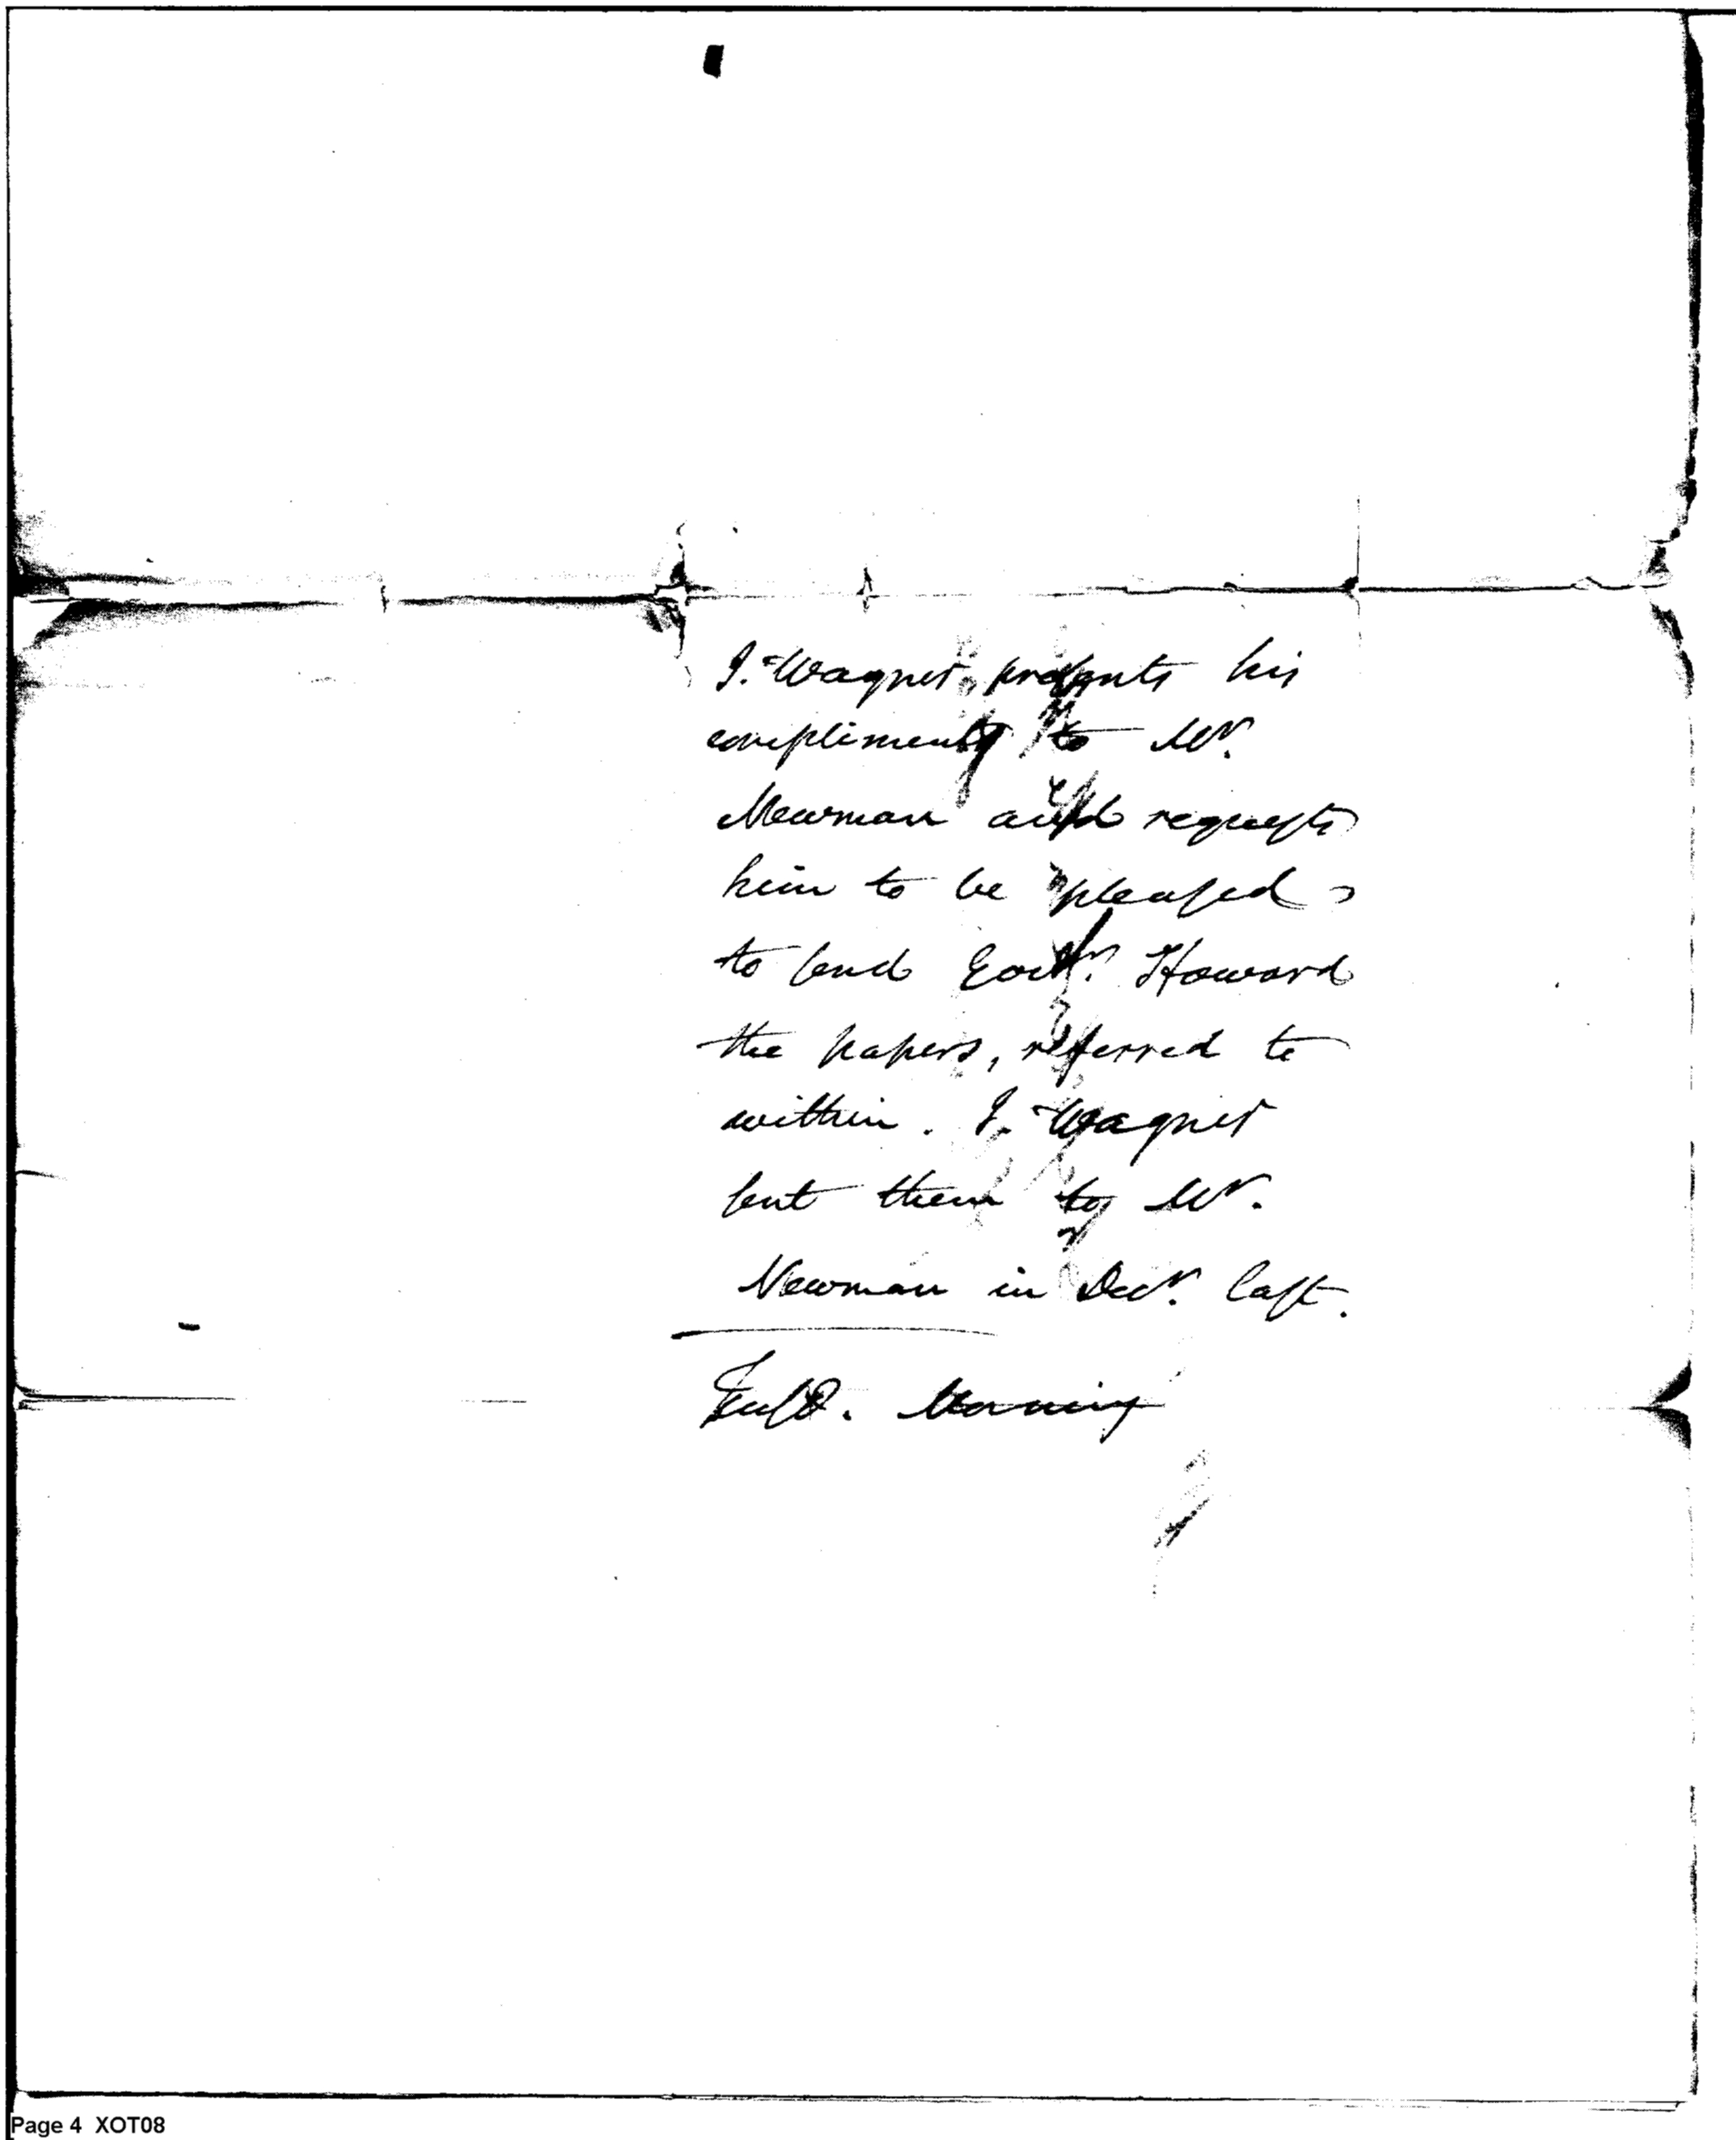 J. Wagner presents his
compliments to Mr.
Newman and requests
him to be pleased
to send Govr. Howard
the papers, referred to
within. J. Wagner
sent them to Mr.
Newman in Decr. last.
Tuesd. Morning
Page 4 XOT08